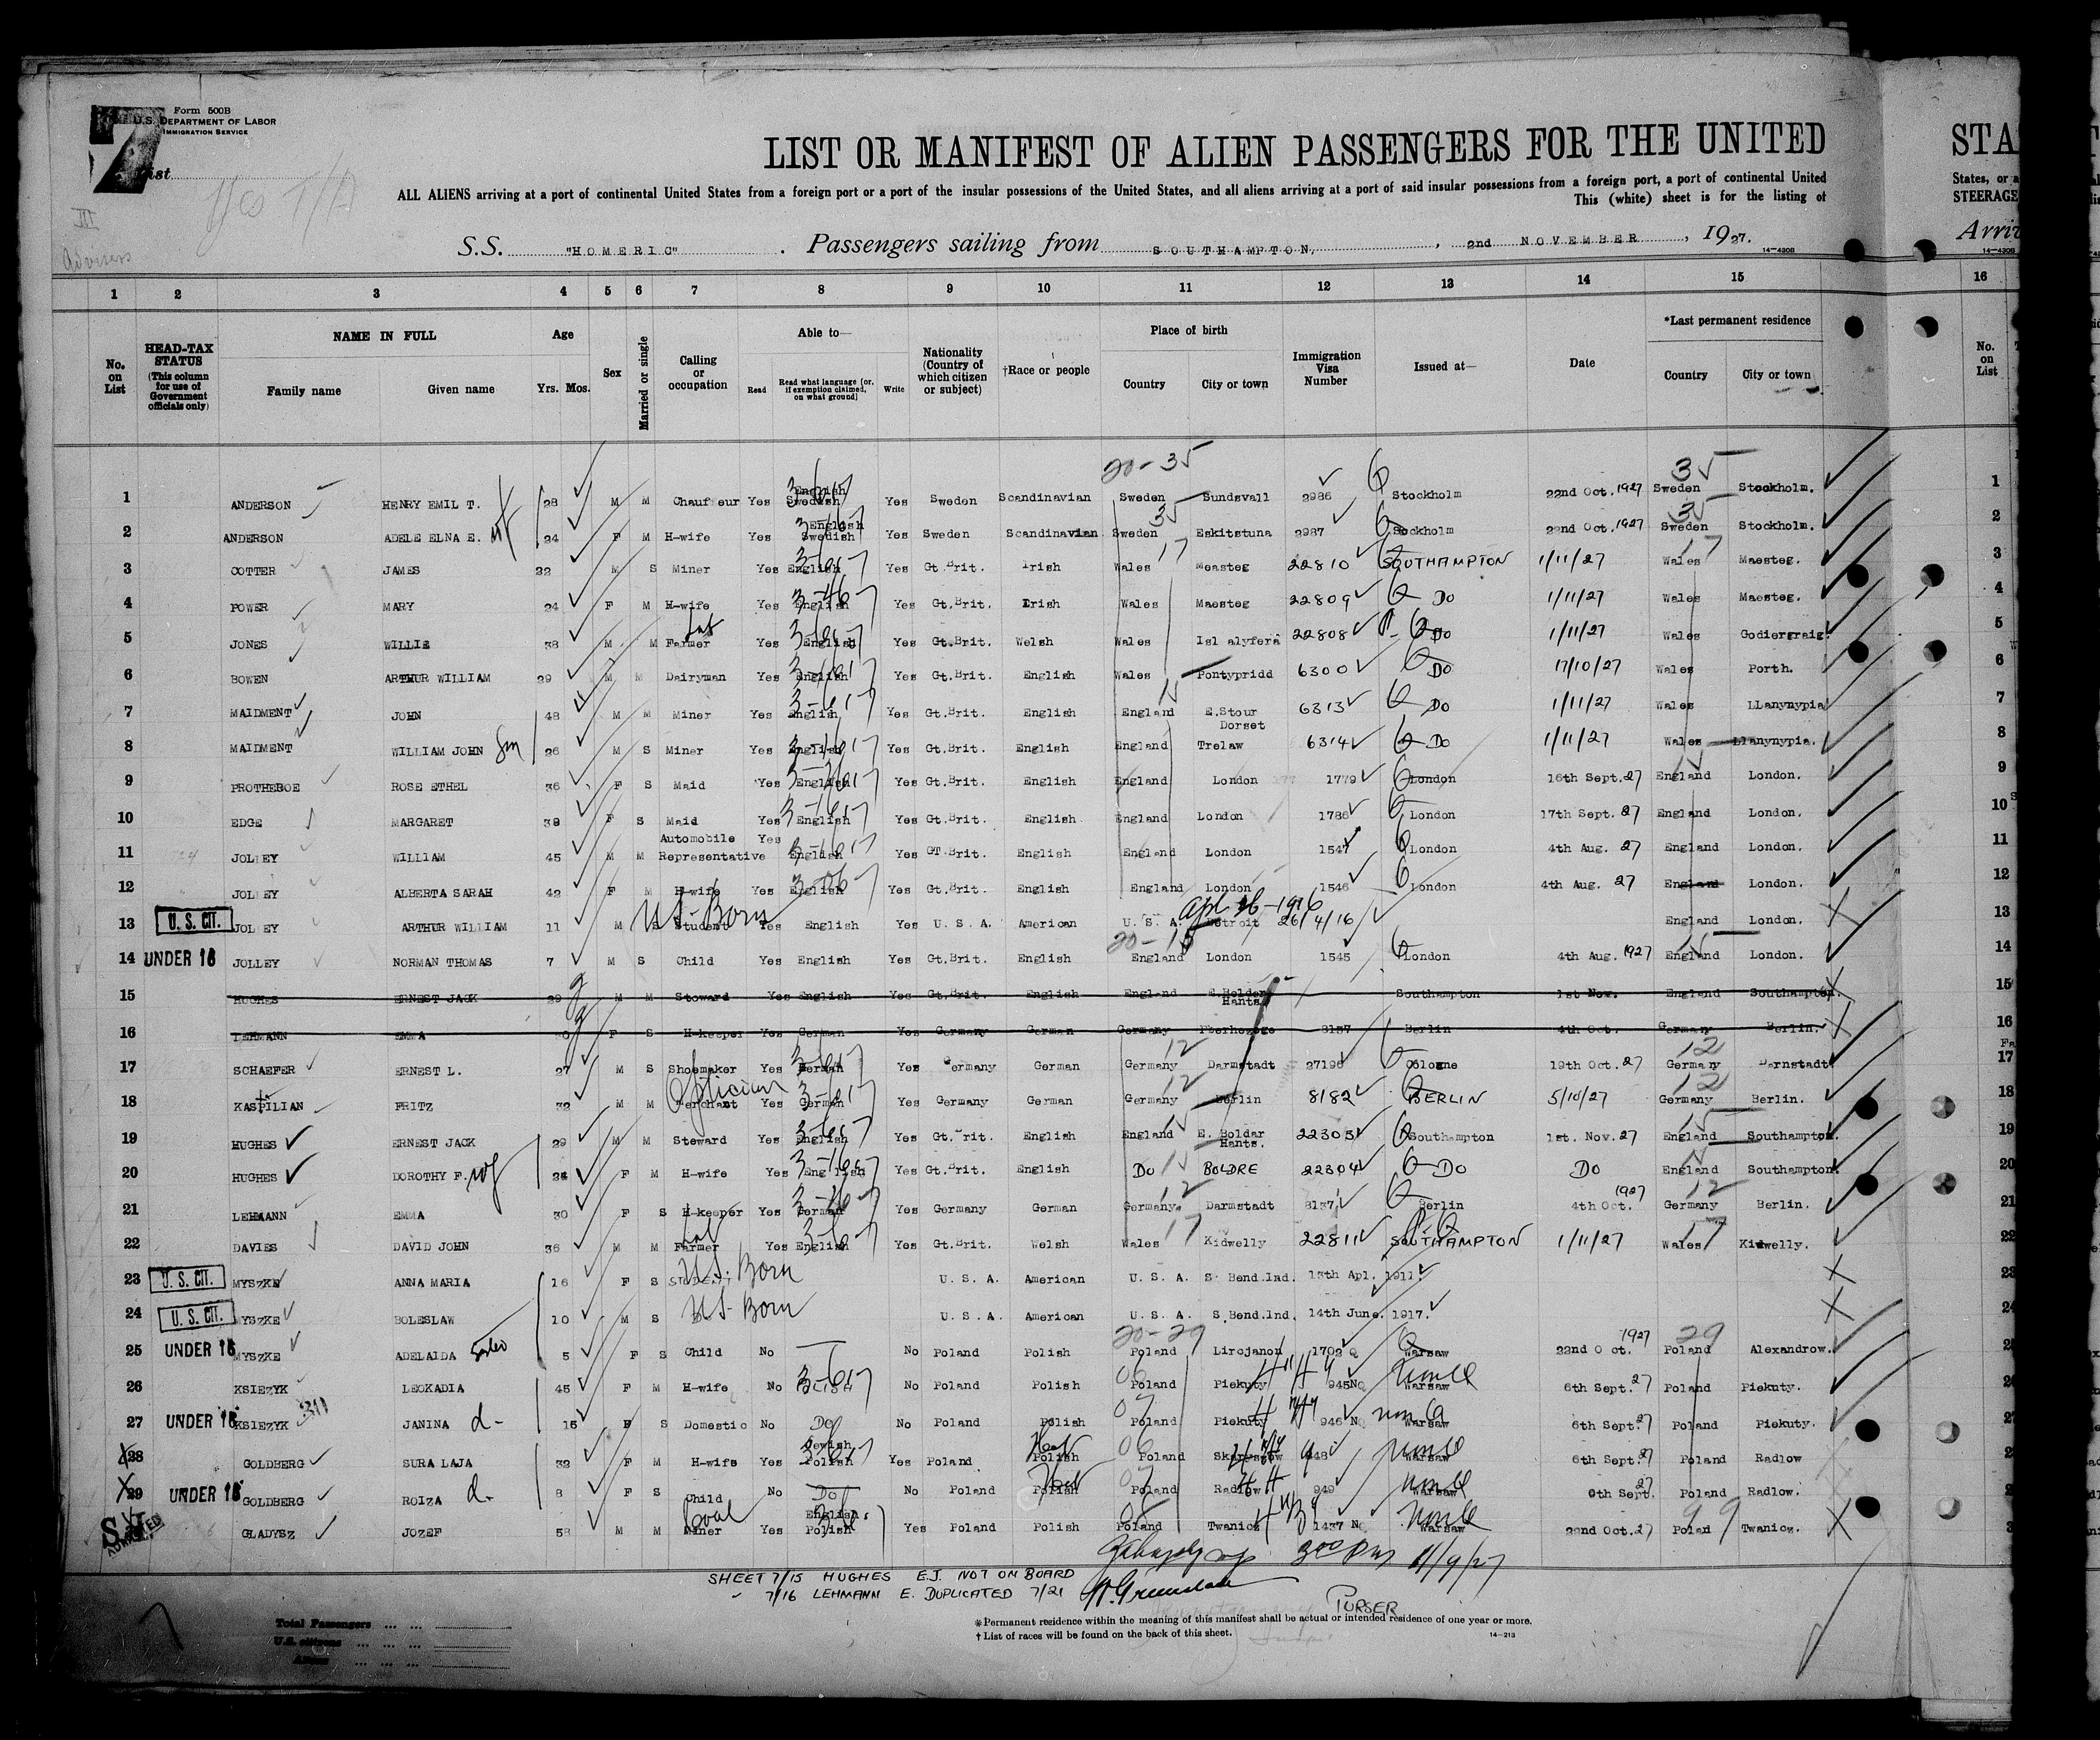 Form 500B
U.S. DEPARTMENT OF LABOR
IMMIGRATION SERVICE
7
List
Yes T/A
III
LIST OR MANIFEST OF ALIEN PASSENGERS FOR THE UNITED
STA
ALL ALIENS arriving at a port of continental United States from a foreign port or a port of the insular possessions of the United States, and all aliens arriving at a port of said insular possessions from a foreign port, a port of continental United
States, or a
This (white) sheet is for the listing of
STEERAGE
S.S. "HOMERIC" . Passengers sailing from SOUTHAMPTON, , 2nd NOVEMBER , 1927.
Arriv
14-430B
14-430B
1 2 3 4 5 6 7 8 9 10 11 12 13 14 15 16
No. on List
HEAD-TAX STATUS (This column for use of Government officials only)
NAME IN FULL
Family name Given name
Age
Yrs. Mos.
Sex
Married or single
Calling or occupation
Able to—
Read Read what language (or, if exemption claimed, on what ground) Write
Nationality (Country of which citizen or subject)
†Race or people
Place of birth
Country City or town
Immigration Visa Number
Issued at—
Date
*Last permanent residence
Country City or town
No. on List
20-35 35
1 ANDERSON HENRY EMIL T. 28 M M Chauffeur Yes English Swedish Yes Sweden Scandinavian Sweden Sundsvall 2986 Stockholm 22nd Oct. 1927 Sweden Stockholm. 1
2 ANDERSON ADELE ELNA E. wf 24 F M H-wife Yes English Swedish Yes Sweden Scandinavian Sweden Eskitstuna 2987 Stockholm 22nd Oct. 1927 Sweden Stockholm. 2
3 COTTER JAMES 32 M S Miner Yes English Yes Gt.Brit. Irish Wales Measteg 22810 SOUTHAMPTON 1/11/27 Wales Maesteg. 3
4 POWER MARY 24 F M H-wife Yes English Yes Gt.Brit. Irish Wales Maesteg 22809 DO 1/11/27 Wales Maesteg. 4
5 JONES WILLIE 38 M M Farmer Yes English Yes Gt.Brit. Welsh Wales 22808 DO 1/11/27 Wales Godiergraig. 5
6 BOWEN ARTHUR WILLIAM 29 M M Dairyman Yes English Yes Gt.Brit. English Wales Pontypridd 6300 DO 17/10/27 Wales Porth. 6
7 MAIDMENT JOHN 48 M M Miner Yes English Yes Gt.Brit. English England E.Stour Dorset 6313 DO 1/11/27 Wales LLanynypia 7
8 MAIDMENT WILLIAM JOHN Sn 26 M S Miner Yes English Yes Gt.Brit. English England Trelaw 6314 DO 1/11/27 Wales Llanynypia. 8
9 PROTHEROE ROSE ETHEL 36 F S Maid Yes English Yes Gt.Brit. English England London 1779 London 16th Sept. 27 England London. 9
10 EDGE MARGARET 38 F S Maid Yes English Yes Gt.Brit. English England London 1786 London 17th Sept. 27 England London. 10
11 JOLLEY WILLIAM 45 M M Automobile Representative Yes English Yes GT.Brit. English England London 1547 London 4th Aug. 27 England London. 11
12 JOLLEY ALBERTA SARAH 42 F M H-wife Yes English Yes Gt.Brit. English England London 1546 London 4th Aug. 27 England London. 12
13 U. S. CIT. JOLLEY ARTHUR WILLIAM 11 M S Student US-Born Yes English Yes U. S. A. American U. S. A. Detroit Apl 26-1916 26/4/16 England London. 13
14 UNDER 16 JOLLEY NORMAN THOMAS 7 M S Child Yes English Yes Gt.Brit. English England London 1545 London 4th Aug. 1927 England London. 14
15 HUGHES ERNEST JACK 29 M M Steward Yes English Yes Gt.Brit. English England E.Bolder Hants Southampton 1st Nov. England Southampton. 15
16 LEHMANN EMMA 30 F S H-keeper Yes German Yes Germany German Germany 8137 Berlin 4th Oct. Germany Berlin. 16
17 SCHAEFER ERNEST L. 27 M S Shoemaker Yes German Yes Germany German Germany Darmstadt 27196 Cologne 19th Oct. 27 Germany Darnstadt 17
18 KASPILIAN FRITZ 32 M M Merchant Optician Yes German Yes Germany German Germany Berlin 8182 BERLIN 5/10/27 Germany Berlin. 18
19 HUGHES ERNEST JACK 29 M M Steward Yes English Yes Gt.Brit. English England E. Boldar Hants. 22303 Southampton 1st. Nov. 27 England Southampton. 19
20 HUGHES DOROTHY F. wf 24 F M H-wife Yes English Yes Gt.Brit. English DO BOLDRE 22304 DO DO England Southampton. 20
21 LEHMANN EMMA 30 F S H-keeper Yes German Yes Germany German Germany. Darmstadt 8137 Berlin 4th Oct. 1927 Germany Berlin. 21
22 DAVIES DAVID JOHN 36 M M Farmer Yes English Yes Gt.Brit. Welsh Wales Kidwelly 22811 SOUTHAMPTON 1/11/27 Wales Kidwelly. 22
23 U. S. CIT. MYSZKE ANNA MARIA 16 F S STUDENT U.S. Born U. S. A. American U. S. A. S Bend.Ind. 13th Apl. 1911. 23
24 U. S. CIT. MYSZKE BOLESLAW 10 M S US-Born U. S. A. American U. S. A. S.Bend.Ind. 14th June. 1917. 24
25 UNDER 16 MYSZKE ADELAIDA Sister 5 F S Child No No Poland Polish Poland Lirojanon 1702 Warsaw 22nd Oct. 1927 Poland Alexandrow. 25
26 KSIEZYK LEOKADIA 45 F M H-wife No POLISH No Poland Polish Poland Piekuty 945 Warsaw 6th Sept. 27 Poland Piekuty. 26
27 UNDER 16 KSIEZYK JANINA d- 15 F S Domestic No DO No Poland Polish Poland Piekuty 946 Warsaw 6th Sept. 27 Poland Piekuty. 27
28 GOLDBERG SURA LAJA 32 F M H-wife Yes Jewish Polish Yes Poland Polish Heb Poland 948 Warsaw 6th Sept. 27 Poland Radlow
29 UNDER 16 GOLDBERG ROIZA d- 8 F S Child No DO No Poland Polish Heb Poland Radlow 949 Warsaw 6th Sept. 27 Poland Radlow.
S.I. ADMITTED GLADYSZ JOZEF 58 M M Coal Miner Yes English Polish Yes Poland Polish Poland Twanicz 1437 Warsaw 22nd Oct. 27 Poland Twanicz.
300 PM 11/9/27
SHEET 7/15 HUGHES E.J. NOT ON BOARD
" 7/16 LEHMANN E. DUPLICATED 7/21
PURSER
Total Passengers
U.S. citizens
Aliens
*Permanent residence within the meaning of this manifest shall be actual or intended residence of one year or more.
† List of races will be found on the back of this sheet.
14-213